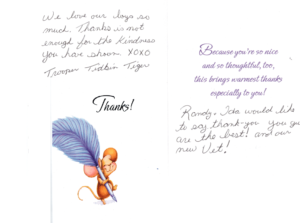 We love our boys so
much. Thanks is not
enough for the kindness
you have shown. XOXO
Tiger
Thanks!
Because you're so nice
and so thoughtful, too,
this brings warmest thanks
especially to you!
Randy. would like
to say thank-you you
are the best! and our
new Vet!